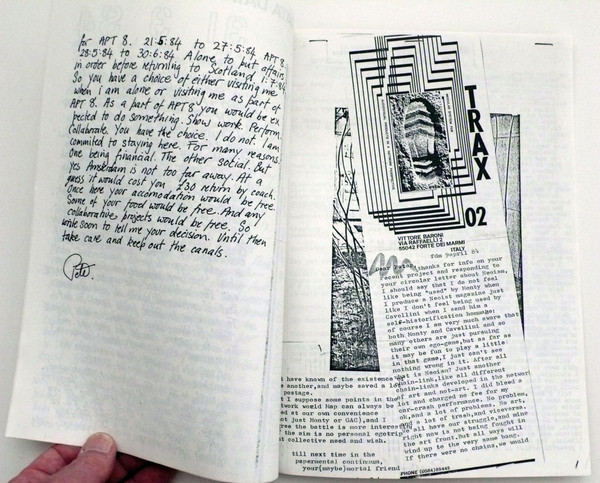 for APT 8. 21:5:84 to 27:5:84 APT 8.
28:5:84 to 30:6:84, Alone to put affairs
in order before returning to Scotland 1:7:84
So you have a choice of either visiting me
when i am alone or visiting me as part of
APT 8. As a part of APT 8 you would be ex
pected to do something. Show work. Perform
Collaborate. You have the choice. I do not. I am
commited to staying here. For many reasons
One being financial. The other social. But
yes Amsterdam is not too far away. At a
guess it would cost you £30 return by coach.
Once here your accomodation would be free.
Some of your food would be free. And any
collaborative projects would be free. So
write soon to tell me your decision. Until then
take care and keep out the canals.
Pete.
TRAX
02
VITTORE BARONI
VIA RAFFAELLI 2
55042 FORTE DEI MARMI
ITALY
fdm 9april 84
Dear Peter, thanks for info on your
recent project and responding to
your circular letter about Neoism,
I should say that I do not feel
like being "used" by Monty when
I produce a Neoist magazine just
like I don't feel being used by
Cavellini when I send him a
self-historification homage:
of course I am very much aware that
both Monty and Cavellini and so
many others are just pursuing
their own ego-game, but as far as
it may be fun to play a little
in that game, I just can't see
nothing wrong in it. After all
what is Neoism? Just another
chain-link, like all different
chain-links developed in the network
of art and not-art. I did bleed a
lot and charged me fee for my
car-crash performance. No problem,
ok, and a lot of problems. No art,
a lot of trash, and viceversa.
We all have our struggle, and mine
right now is not being fought in
the art front, but all ways will
wind up to the very same bang.
If there were no chains, we would
i have known of the existence of
e another, and maybe saved a lot
postage.
t I suppose some points in the
twork would Map can always be
ed at our own convenience
not just Monty or GAC), and I
ree the battle is more interesting
the aim is no personal egotrip
t collective need and wish.
till next time in the
papermental continuum,
your(maybe)mortal friend
PHONE (0584)85445
1